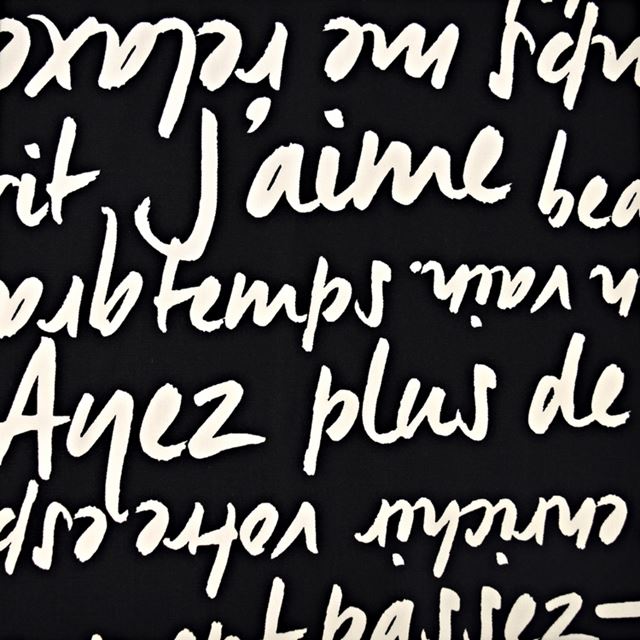 me relaxe
J'aime
temps
vain.
Ayez plus de
enrichir votre esp
passez-